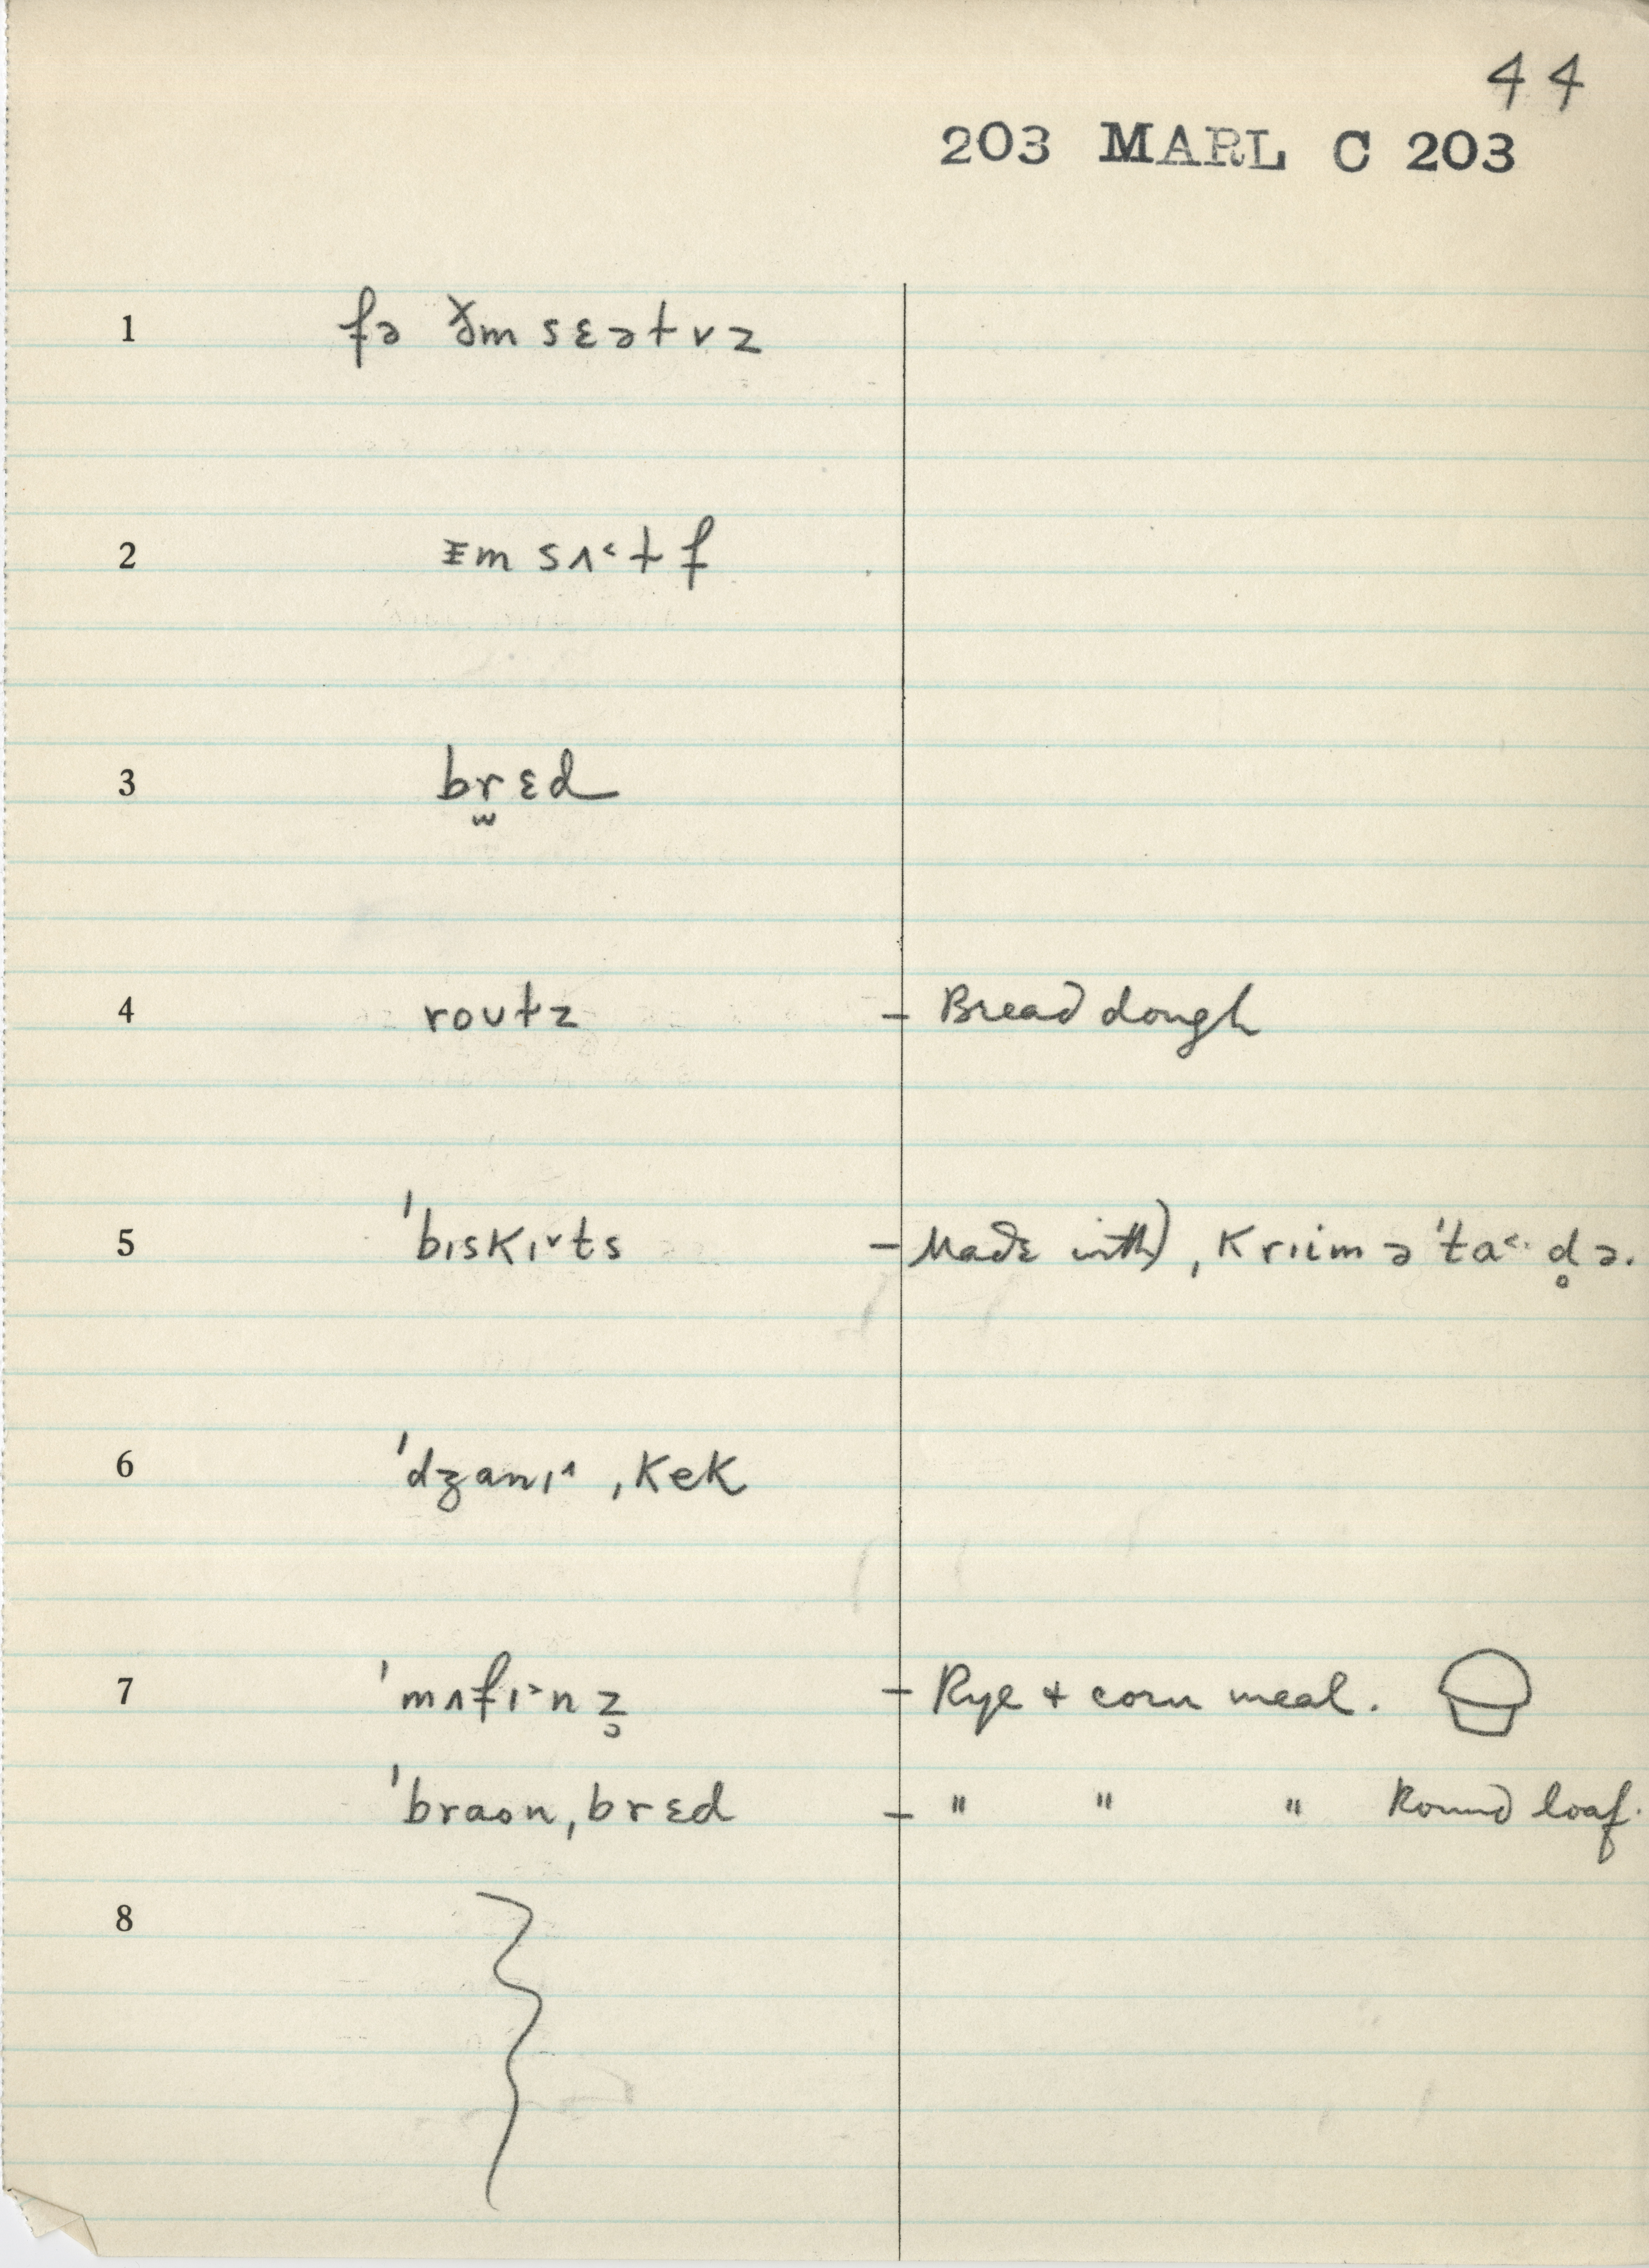 44
203 MARL C 203
1 fə ðm sɛəłvz
2 ɪm sʌ˂łf
3 br̫ɛd
4 roʊłz – Bread dough
5 ˈbɪskɪ˅ts – Made with ˌkriim ə ˈta˂· d̥ə.
6 ˈdʒanɪ˄ ˌkek
7 ˈmʌfɪ˃nz̥ – Rye + corn meal.
ˈbraʊnˌbrɛd – " " " Round loaf.
8